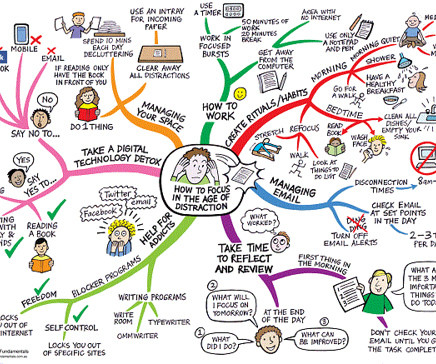 HOW TO FOCUS
IN THE AGE OF
DISTRACTION
MANAGING
YOUR SPACE
USE AN INTRAY
FOR INCOMING
PAPER
CLEAR AWAY
ALL DISTRACTIONS
SPEND 10 MINS
EACH DAY
DECLUTTERING
IF READING ONLY
HAVE THE BOOK
IN FRONT OF YOU
DO 1 THING
HOW TO
WORK
USE A
TIMER
50 MINUTES OF
WORK
20 MINUTES
BREAK
WORK IN
FOCUSED
BURSTS
GET AWAY
FROM THE
COMPUTER
AREA WITH
NO INTERNET
USE ONLY
A NOTEPAD
AND PEN
CREATE RITUALS/HABITS
MORNING
MORNING QUIET
SHOWER
GO FOR
A WALK
HAVE A
HEALTHY
BREAKFAST
BEDTIME
CLEAN ALL
DISHES/
EMPTY YOUR
SINK
WASH
FACE
READ
BOOK
REFOCUS
STRETCH
WALK
LOOK AT
THINGS TO
DO LIST
MANAGING
EMAIL
DISCONNECTION
TIMES
8am
CHECK EMAIL
AT SET POINTS
IN THE DAY
2-3
PER DA
DING
DING
TURN OFF
EMAIL ALERTS
TAKE TIME
TO REFLECT
AND REVIEW
WHAT
WORKED?
FIRST THING
IN THE MORNING
WHAT A
THE 3 M
IMPORTA
THINGS
DO TODA
DON'T CHECK YOUR
EMAIL UNTIL YOU G
THE TASK COMPLETE
AT THE END
OF THE DAY
WHAT WILL
I FOCUS ON
TOMORROW?
1 WHAT
DID I DO?
2 WHAT CAN BE
IMPROVED?
HELP FOR
ADDICTS
Twitter
email
Facebook
BLOCKER PROGRAMS
FREEDOM
KS YOU
INTERNET
SELF CONTROL
LOCKS YOU OUT
OF SPECIFIC SITES
WRITING PROGRAMS
WRITE
ROOM
OMMWRITER
TYPEWRITER
TAKE A DIGITAL
TECHNOLOGY DETOX
SAY NO TO...
No
MOBILE
EMAIL
OOK
SAY
YES TO...
Yes
READING
A BOOK
NG WITH
Y &
DS
Fundamentals